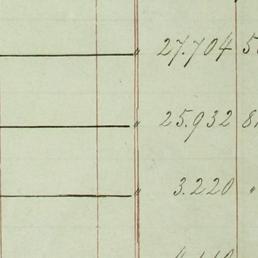 " 27.704
" 25.932
" 3.220 "